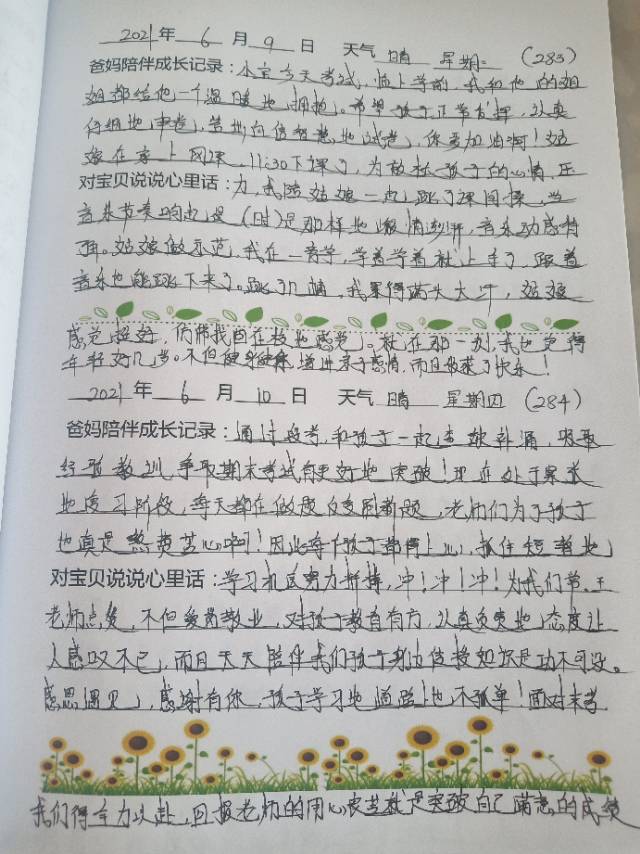 2021年 6 月 9 日 天气 晴 星期三 (283)
爸妈陪伴成长记录:小宝今天考试,临上学前,我和他的姐
姐都给他一个温暖地拥抱。希望孩子正常发挥,认真
仔细地审卷,答好向信智慧地试卷,你要加油啊!姑
娘在家上网课,11:30下课了,为放松孩子的心情、压
对宝贝说说心里话:力,我陪姑娘一起跳了课间操,当
音乐节奏响起是(时)是那样地激情澎湃,音乐动感特
强。姑娘做示范,我在一旁学,学着学着就上手了,跟着
音乐也能跳下来了。跳了几遍,我累得满头大汗,姑娘
感觉挺好,仿佛找回在校地感觉。就在那一刻,我也觉得
年轻好几岁。不但健身健体,增进亲子感情,而且收获了快乐!
2021年 6 月 10 日 天气 晴 星期四 (284)
爸妈陪伴成长记录:通过段考,和孩子一起查缺补漏,吸取
经验教训,争取期末考试有更好地突破!现在处于紧张
地复习阶段,每天都在做题反复刷新题,老师们为了孩子
也真是煞费苦心啊!因此每个孩子都得上心,抓住短暂地
对宝贝说说心里话:学习机会努力拼搏,冲!冲!冲!为我们节、王
老师点赞,不但爱岗敬业,对孩子教育有方,认真负责地态度让
人感叹不已,而且天天陪伴我们孩子身边传授知识是功不可没。
感恩遇见,感谢有你,孩子学习地道路上也不孤单!面对末考
我们得全力以赴,回报老师的用心良苦就是突破自己满意的成绩